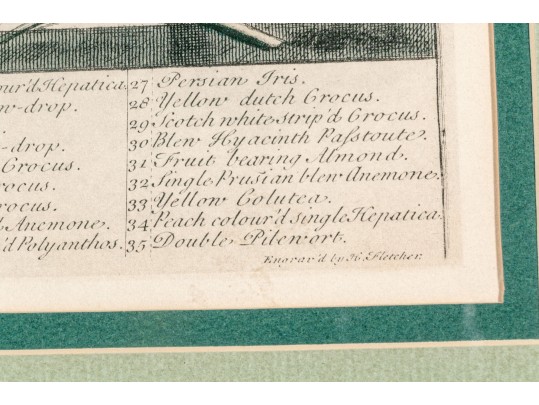 our'd Hepatica. 27 Persian Iris.
w-drop. 28 Yellow dutch Crocus.
29 Scotch white strip'd Crocus.
-drop. 30 Blew Hyacinth Passtoute.
Crocus. 31 Fruit bearing Almond.
ocus. 32 Single Prusian blew Anemone.
ocus. 33 Yellow Colutea.
Anemone. 34 Peach colour'd single Hepatica.
'd Polyanthos. 35 Double Pilewort.
Engrav'd by H. Fletcher.